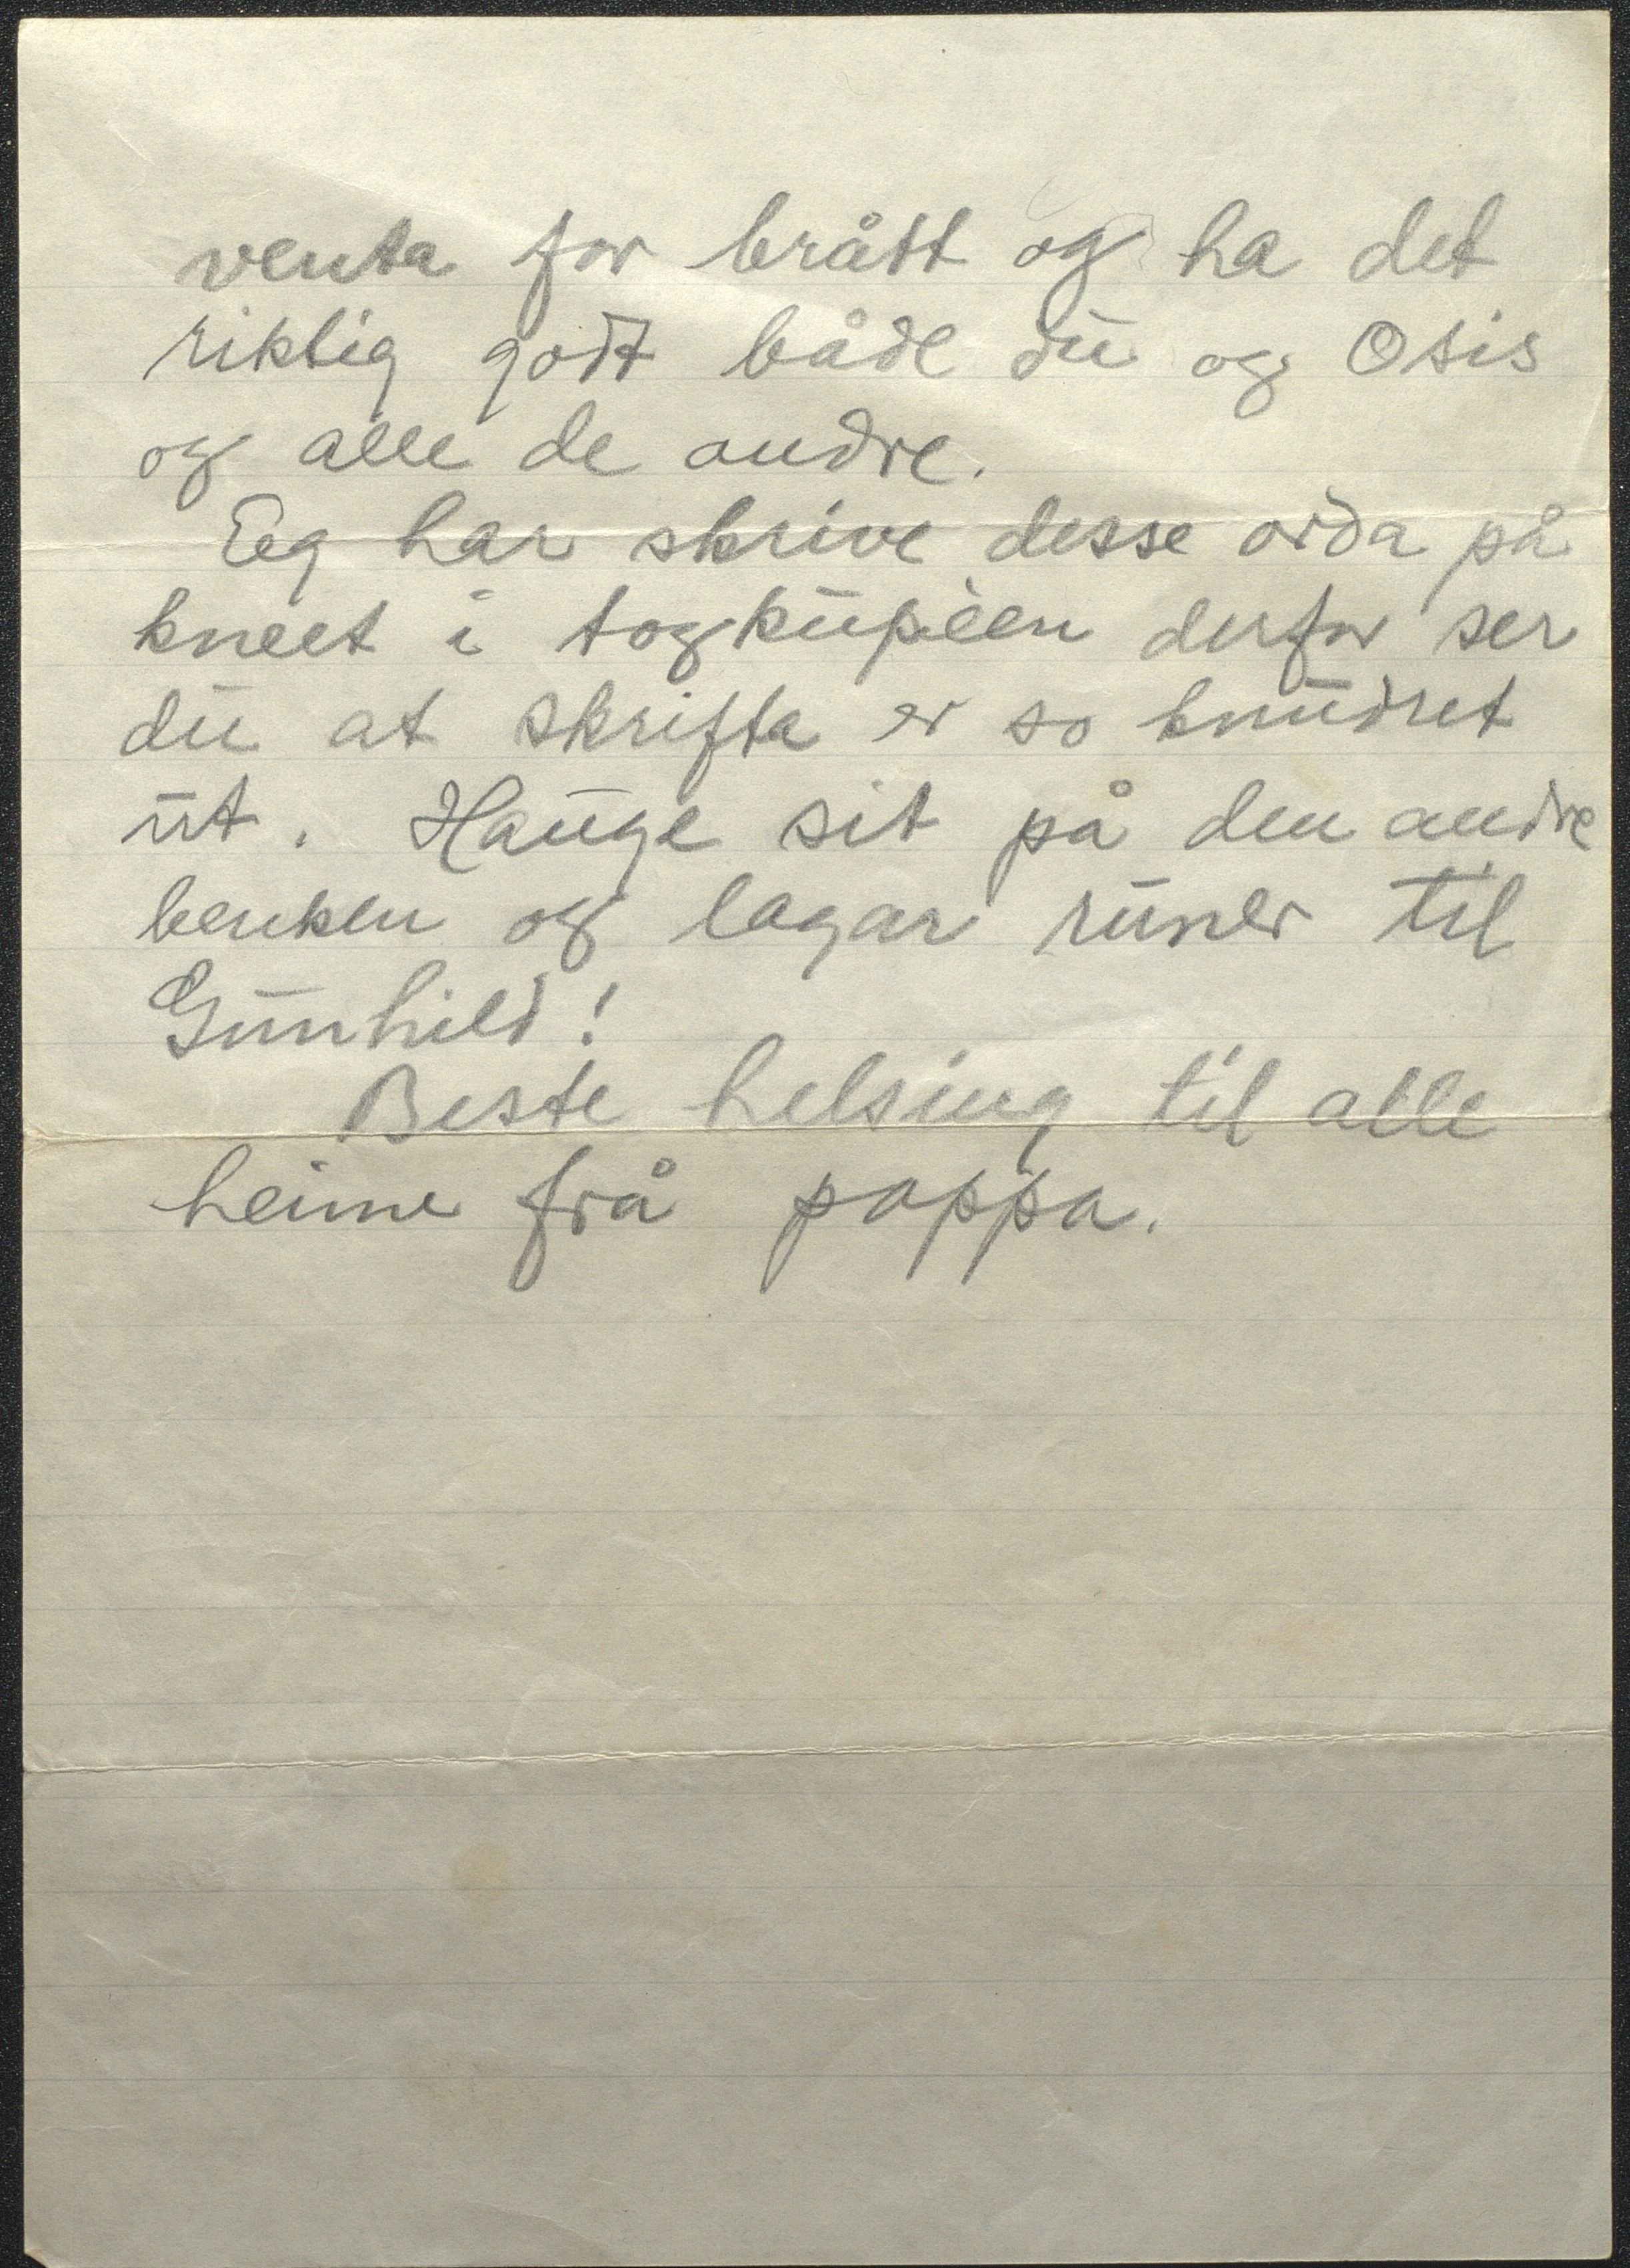 venta for brått og ha det
riktig godt både du og Osis
og alle de andre.
Eg har skrive desse orda på
kneet i togkupèen derfor ser
du at skrifta er so knudret
ut. Hauge sit på den andre
benken og lagar runer til
Gunhild!
Beste helsing til alle
heime frå pappa.